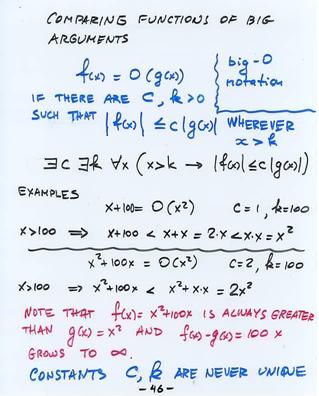 COMPARING FUNCTIONS OF BIG
ARGUMENTS
f(x) = O(g(x))
big-O
notation
IF THERE ARE C, k>0
SUCH THAT |f(x)| ≤ c|g(x)| WHEREVER
x>k
∃c ∃k ∀x (x>k → |f(x)| ≤ c|g(x)|)
EXAMPLES
x+100 = O(x²) C=1, k=100
x>100 ⇒ x+100 < x+x = 2·x < x·x = x²
x²+100x = O(x²) C=2, k=100
x>100 ⇒ x²+100x < x²+x·x = 2x²
NOTE THAT f(x)= x²+100x IS ALWAYS GREATER
THAN g(x)=x² AND f(x)-g(x)=100x
GROWS TO ∞.
CONSTANTS C, k ARE NEVER UNIQUE
-46-